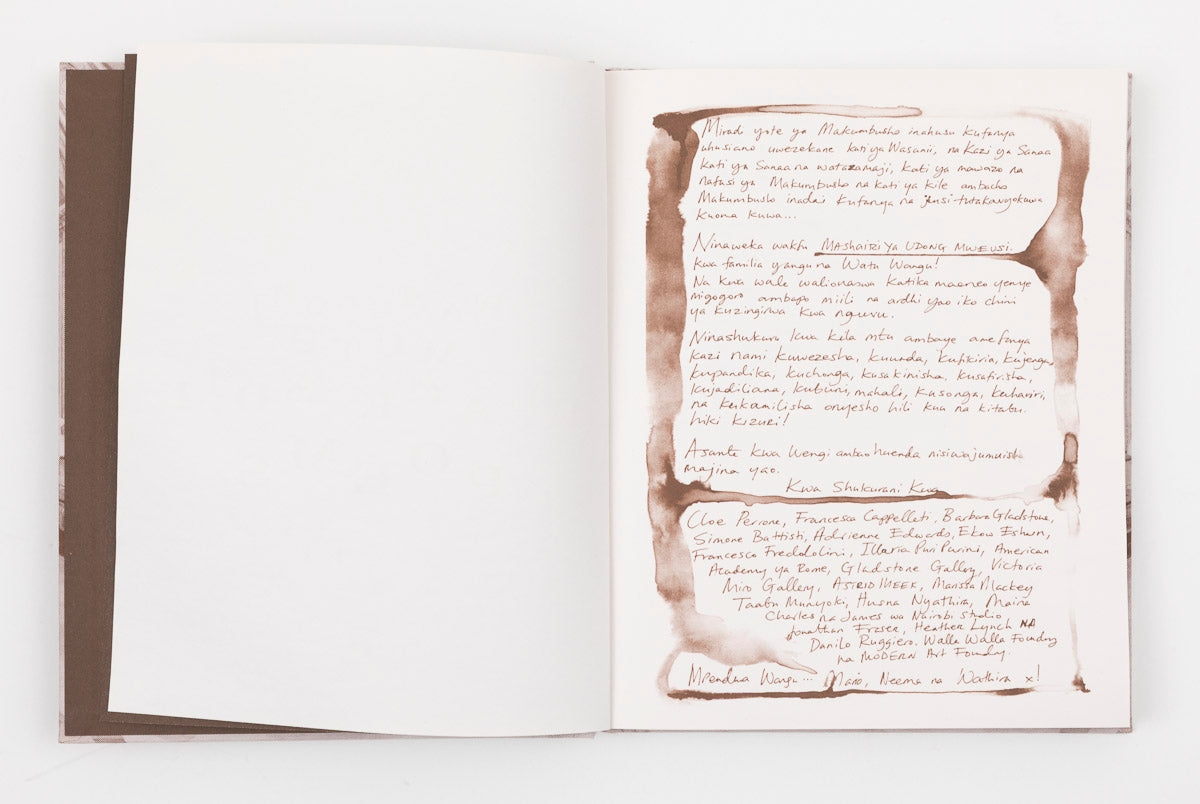 Miradi yote ya Makumbusho inahusu kufanya
uhusiano uwezekane kati ya Wasanii, na Kazi ya Sanaa
kati ya Sanaa na watazamaji, kati ya mawazo na
nafasi ya Makumbusho na kati ya kile ambacho
Makumbusho inadai kufanya na jinsi tutakavyokuwa
kuona kuwa...
Ninaweka wakfu MASHAIRI YA UDONG MWEUSI.
kwa familia yangu na Watu Wangu!
Na kwa wale walionaswa katika maeneo yenye
migogoro ambapo miili na ardhi yao iko chini
ya kuzingirwa kwa nguvu.
Ninashukuru kwa kila mtu ambaye amefanya
kazi nami kuwezesha, kuunda, kufikiria, kujenga,
kupandika, kuchonga, kusakinisha, kusafirisha,
kujadiliana, kubuni, mahali, kusonga, kuhariri,
na kukamilisha onyesho hili kua na kitabu.
hiki kizuri!
Asante kwa Wengi ambao huenda nisiwajumuishe
majina yao.
Kwa Shukurani Kwa
Cloe Perrone, Francesca Cappelleti, Barbara Gladstone,
Simone Battisti, Adrienne Edwards, Ekow Eshun,
Francesco Freddolini, Illaria Puri Purini, American
Academy ya Rome, Gladstone Gallery, Victoria
Miro Gallery, ASTRID MEEK, Marissa Mackey
Taabu Munyoki, Husna Nyathira, Maina
Charles na James wa Nairobi studio
Jonathan Fraser, Heather Lynch NA
Danilo Ruggiero. Walla Walla Foundry
na MODERN Art Foundry.
Mpendwa Wangu... Mario, Neema na Wathira x!